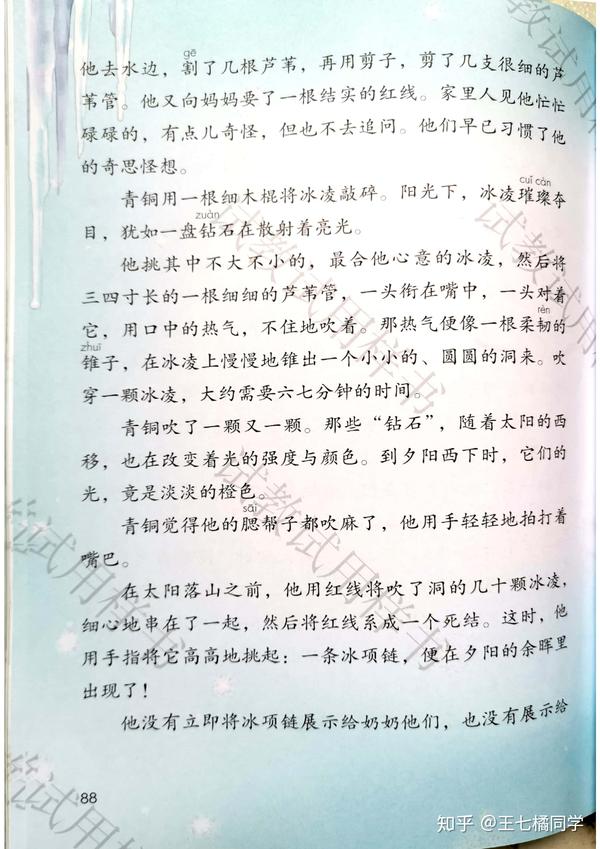 gē
他去水边，割了几根芦苇，再用剪子，剪了几支很细的芦
苇管。他又向妈妈要了一根结实的红线。家里人见他忙忙
碌碌的，有点儿奇怪，但也不去追问。他们早已习惯了他
的奇思怪想。
cuǐ càn
青铜用一根细木棍将冰凌敲碎。阳光下，冰凌璀璨夺
zuàn
目，犹如一盘钻石在散射着亮光。
他挑其中不大不小的，最合他心意的冰凌，然后将
三四寸长的一根细细的芦苇管，一头衔在嘴中，一头对着
rèn
它，用口中的热气，不住地吹着。那热气便像一根柔韧的
zhuī
锥子，在冰凌上慢慢地锥出一个小小的、圆圆的洞来。吹
穿一颗冰凌，大约需要六七分钟的时间。
青铜吹了一颗又一颗。那些“钻石”，随着太阳的西
移，也在改变着光的强度与颜色。到夕阳西下时，它们的
光，竟是淡淡的橙色。
sāi
青铜觉得他的腮帮子都吹麻了，他用手轻轻地拍打着
嘴巴。
在太阳落山之前，他用红线将吹了洞的几十颗冰凌，
细心地串在了一起，然后将红线系成一个死结。这时，他
用手指将它高高地挑起：一条冰项链，便在夕阳的余晖里
出现了！
他没有立即将冰项链展示给奶奶他们，也没有展示给
88
试教试用样书
试教试用样书
试教试用样书
试用样书
试用样书
知乎 @王七橘同学